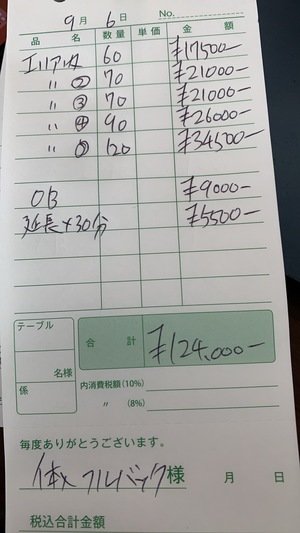 9月 6日 No.
品名 数量 単価 金額
エリア内 60 ¥17500-
〃 ② 70 ¥21000-
〃 ③ 70 ¥21000-
〃 ④ 90 ¥26000-
〃 ⑤ 120 ¥34500-
OB ¥9000-
延長+30分 ¥5500-
テーブル
名様
係
合計 ¥124.000-
内消費税額(10%)
〃 (8%)
毎度ありがとうございます。
体入フルバック様 月 日
税込合計金額